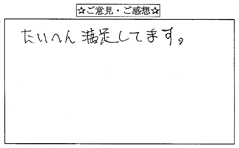 ☆ご意見・ご感想☆
たいへん満足してます。